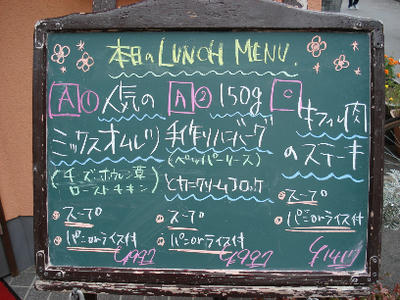 本日のLUNCH MENU.
A ① 人気の
ミックスオムレツ
(チーズ・ホウレン草
ローストチキン)
スープ
パンorライス付
A ② 150g
手作りハンバーグ
(ペッパーソース)
とカニクリームコロッケ
スープ
パンorライス付
C 牛フィレ肉
のステーキ
スープ
パンorライス付